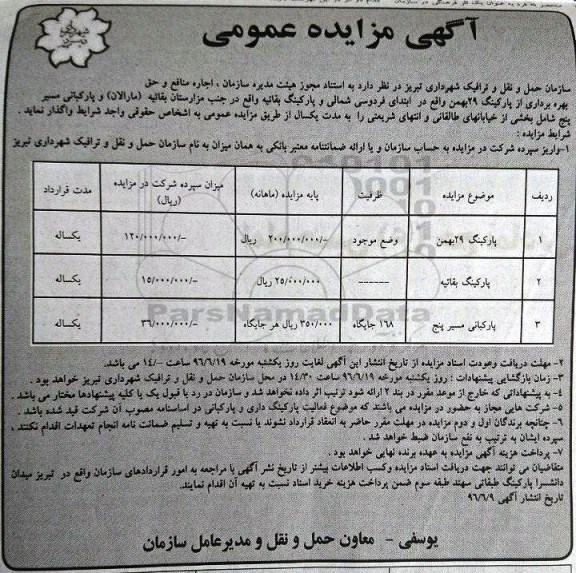 آگهی مزایده عمومی
سازمان حمل و نقل و ترافیک شهرداری تبریز در نظر دارد به استناد مجوز هیئت مدیره سازمان ، اجاره منافع و حق
بهره برداری از پارکینگ ۲۹بهمن واقع در ابتدای فردوسی شمالی و پارکینگ بقائیه واقع در جنب مزارستان بقائیه (مارالان) و پارکبانی مسیر
پنج شامل بخشی از خیابانهای طالقانی و انتهای شریعتی را به مدت یکسال از طریق مزایده عمومی به اشخاص حقوقی واجد شرایط واگذار نماید .
شرایط مزایده :
۱-واریز سپرده شرکت در مزایده به حساب سازمان و یا ارائه ضمانتنامه معتبر بانکی به همان میزان به نام سازمان حمل و نقل و ترافیک شهرداری تبریز
ردیف موضوع مزایده ظرفیت پایه مزایده (ماهانه) میزان سپرده شرکت در مزایده (ریال) مدت قرارداد
۱ پارکینگ ۲۹بهمن وضع موجود ۲۰۰/۰۰۰/۰۰۰/- ریال ۱۲۰/۰۰۰/۰۰۰/- یکساله
۲ پارکینگ بقائیه ------ ۲۵/۰۰۰/۰۰۰ ریال ۱۵/۰۰۰/۰۰۰/- یکساله
۳ پارکبانی مسیر پنج ۱۶۸ جایگاه ۳۵۰/۰۰۰ ریال هر جایگاه ۳۶/۰۰۰/۰۰۰/- یکساله
ParsNamadData
۲- مهلت دریافت وعودت اسناد مزایده از تاریخ انتشار این آگهی لغایت روز یکشنبه مورخه ۹۶/۶/۱۹ ساعت ۱۴/۰۰ می باشد.
۳- زمان بازگشایی پیشنهادات : روز یکشنبه مورخه ۹۶/۶/۱۹ ساعت ۱۴/۳۰ در محل سازمان حمل و نقل و ترافیک شهرداری تبریز خواهد بود .
۴- به پیشنهاداتی که خارج از موعد مقرر در بند ۲ ارائه شود ترتیب اثر داده نخواهد شد و سازمان در رد یا قبول یک یا کلیه پیشنهادها مختار می باشد .
۵- شرکت هایی مجاز به حضور در مزایده می باشند که موضوع فعالیت پارکینگ داری و پارکبانی در اساسنامه مصوب آن شرکت قید شده باشد .
۶- چنانچه برندگان اول و دوم مزایده در مهلت مقرر حاضر به انعقاد قرارداد نشوند یا نسبت به تهیه و تسلیم ضمانت نامه انجام تعهدات اقدام نکنند ،
سپرده ایشان به ترتیب به نفع سازمان ضبط خواهد شد .
۷- پرداخت هزینه آگهی مزایده به عهده برنده نهایی خواهد بود .
متقاضیان می توانند جهت دریافت اسناد مزایده وکسب اطلاعات بیشتر از تاریخ نشر آگهی با مراجعه به امور قراردادهای سازمان واقع در تبریز میدان
دانشسرا پارکینگ طبقاتی سهند طبقه سوم ضمن پرداخت هزینه خرید اسناد نسبت به تهیه آن اقدام نمایند.
تاریخ انتشار آگهی ۹۶/۶/۹
یوسفی - معاون حمل و نقل و مدیرعامل سازمان